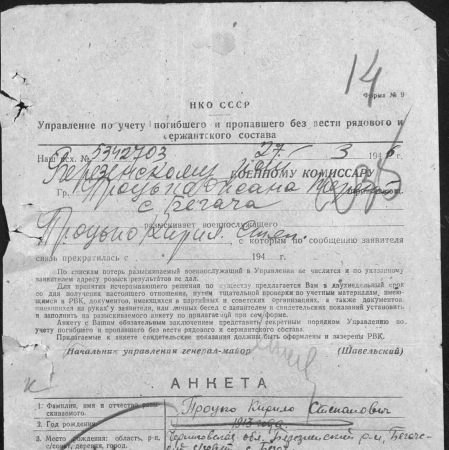 14
Форма № 9
НКО СССР
Управление по учету погибшего и пропавшего без вести рядового и
сержантского состава
Наш исх. № 5342703 27/ 3 1946
Березинскому ВОЕННОМУ КОМИССАРУ
Гр. Процько Оксана
с. Бегача
разыскивает военнослужащего
Процько Кирил. Степ.
с которым по сообщению заявителя
связь прекратилась с 194 г.
По спискам потерь разыскиваемый военнослужащий в Управлении не числится и по указанному
заявителем адресу розыск результатов не дал.
Для принятия исчерпывающего решения по существу предлагается Вам в двухнедельный срок
со дня получения настоящего отношения, путем тщательной проверки по учетным материалам, имею-
щимся в РВК, документов, имеющихся в партийных и советских организациях, а также документов,
имеющихся на руках у заявителя, или личных бесед с заявителем и свидетельских показаний установить
и заполнить на разыскиваемого анкету по прилагаемой при сем форме.
Анкету с Вашим обязательным заключением представить секретным порядком Управлению по
учету погибшего и пропавшего без вести рядового и сержантского состава.
Прилагаемые к анкете свидетельские показания должны быть оформлены и заверены РВК.
Начальник управления генерал-майор (Шавельский)
АНКЕТА
1. Фамилия, имя и отчество разы-
скиваемого. Процько Кирило Степанович
2. Год рождения 1913 года
3. Место рождения: область, р-н, Черниговская обл. Березинский р-н, Бегач-
с/совет, деревня, город. с. Бегач